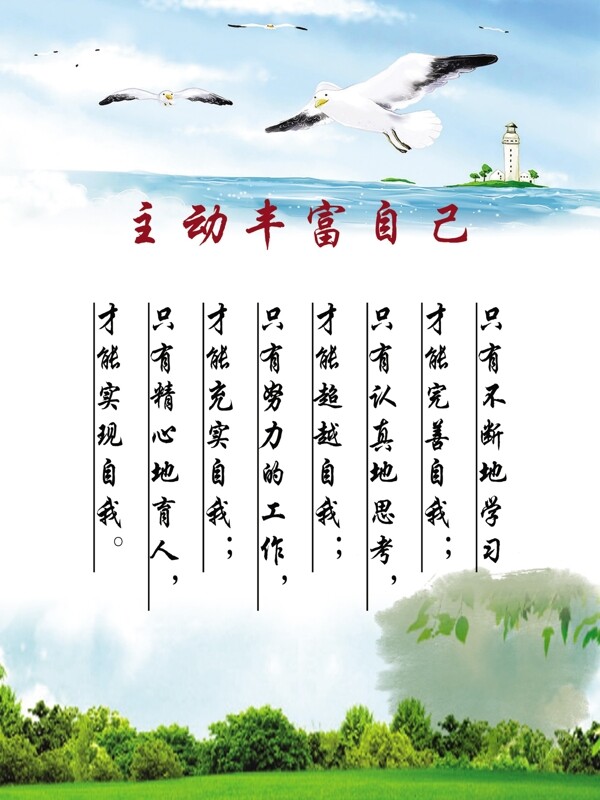 主动丰富自己
只有不断地学习
才能完善自我；
只有认真地思考，
才能超越自我；
只有努力的工作，
才能充实自我；
只有精心地育人，
才能实现自我。